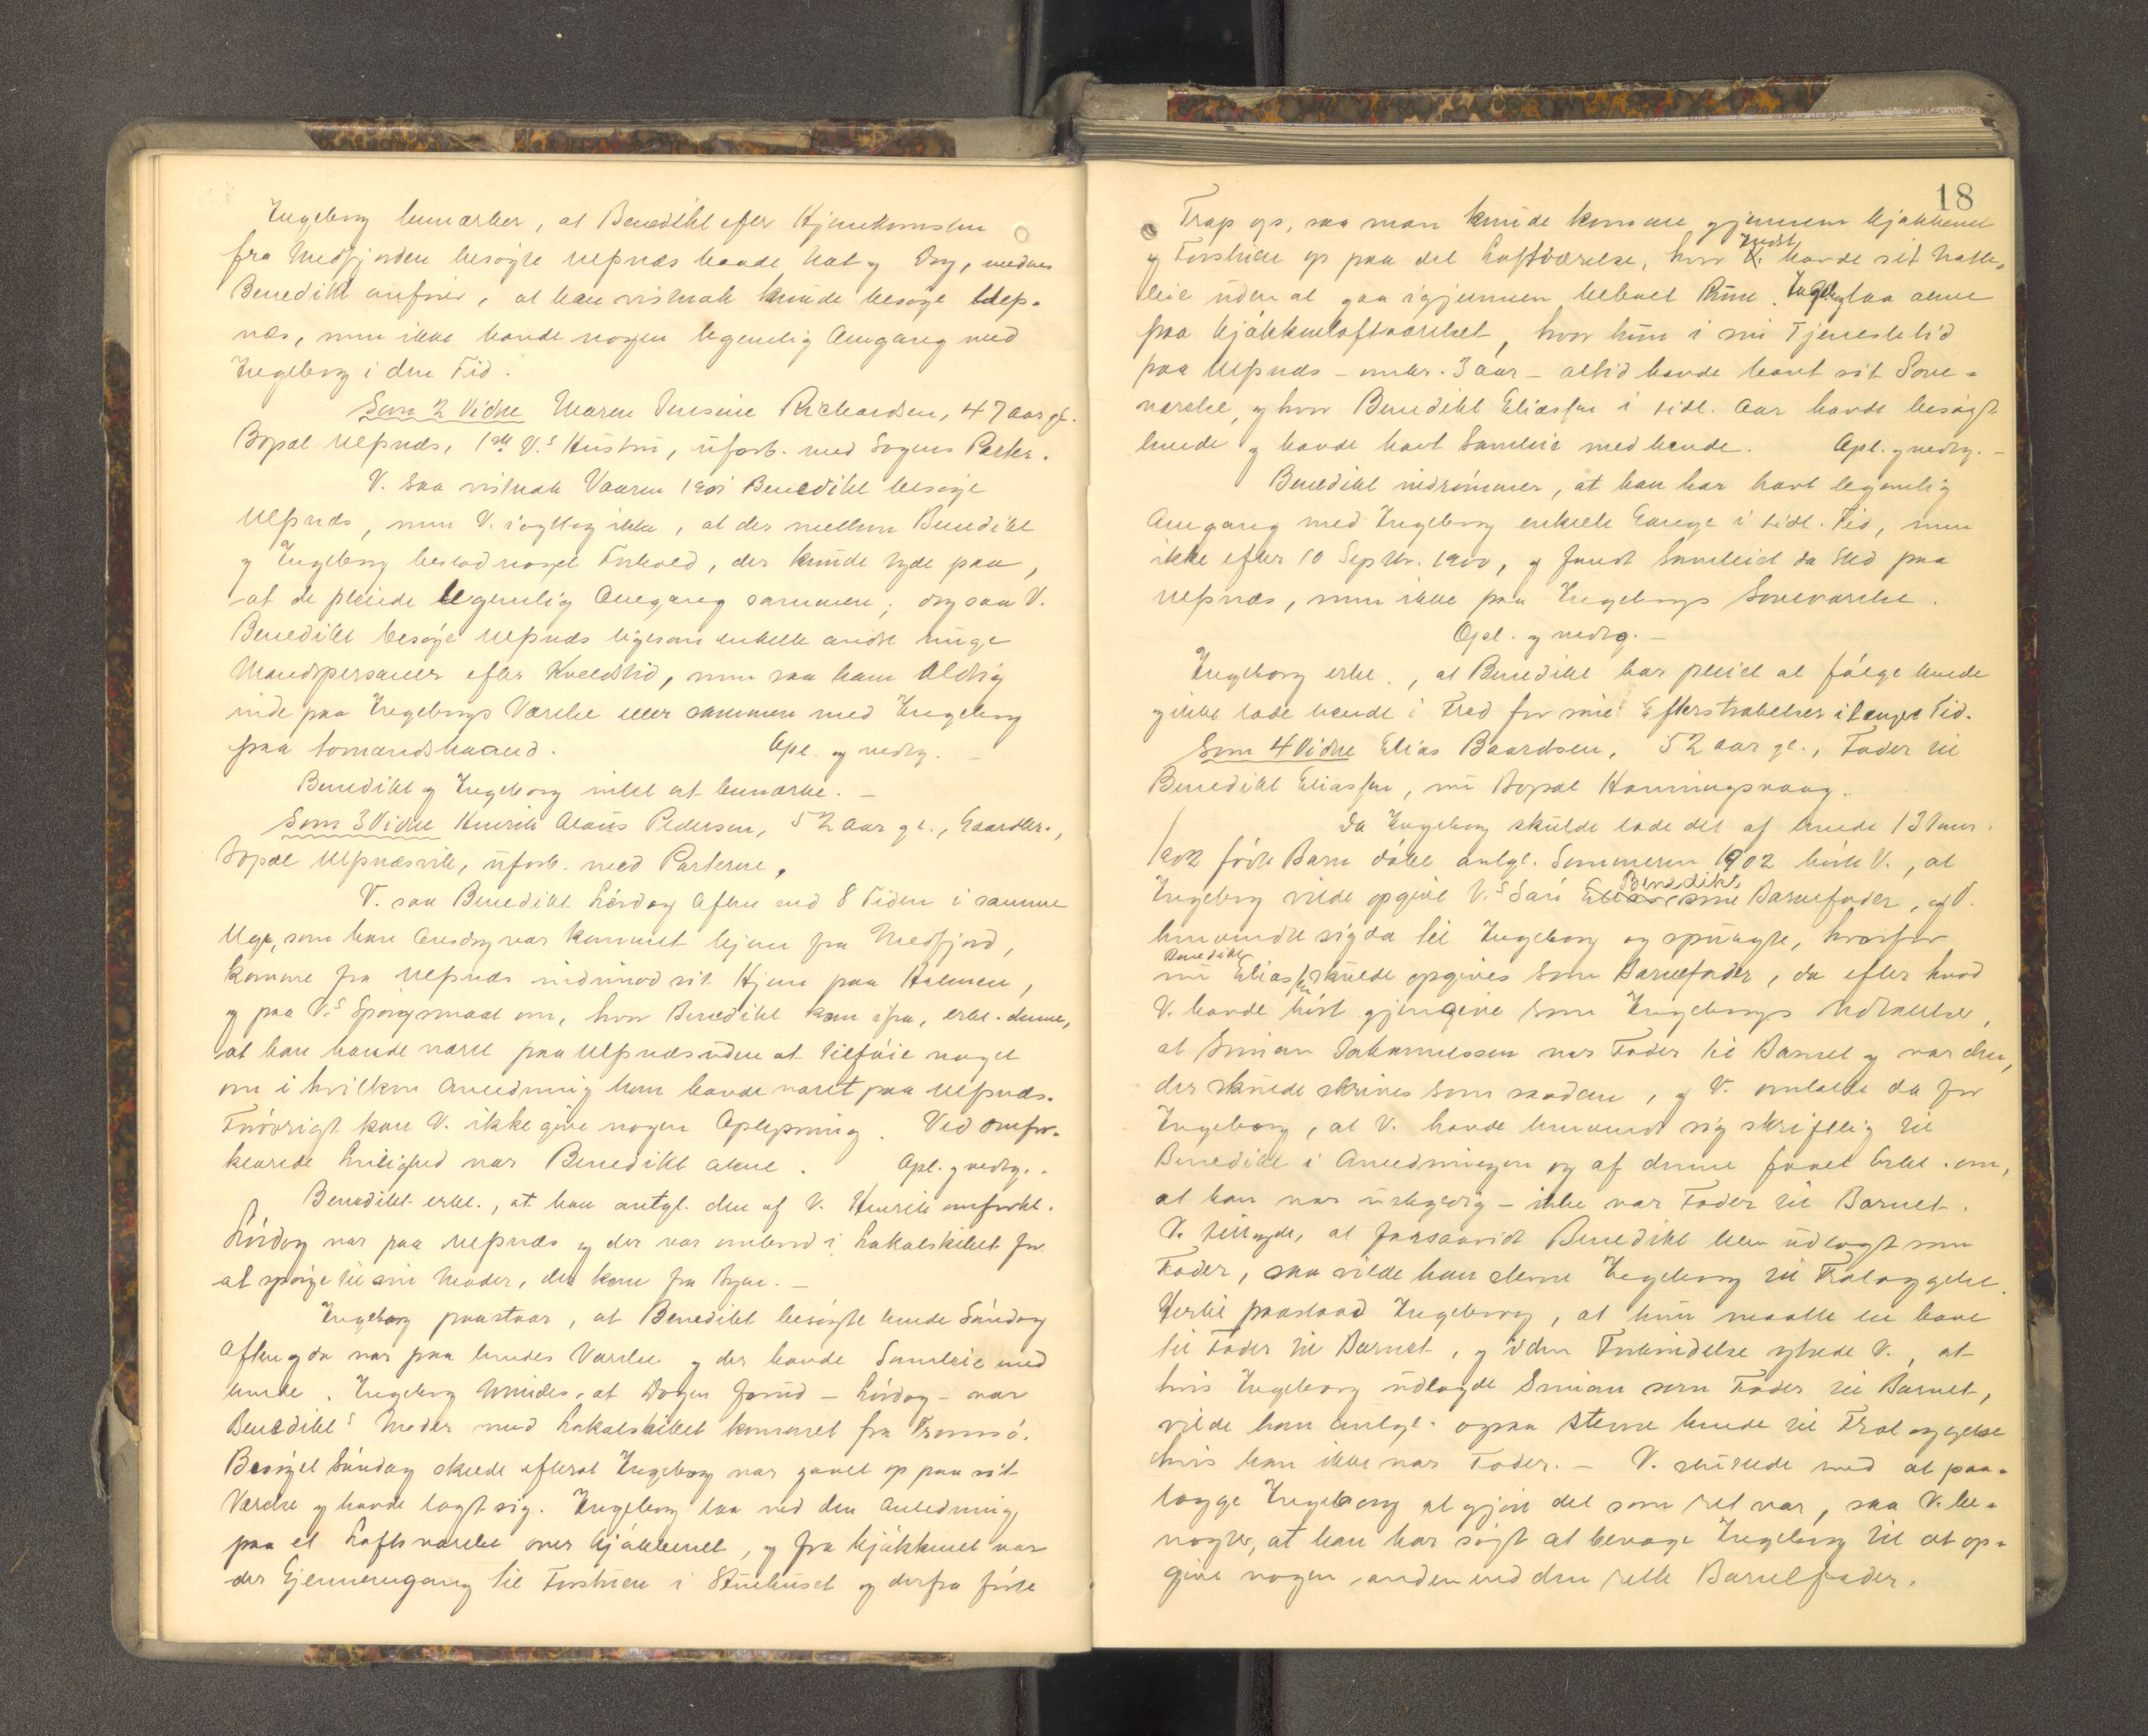 Ingeborg bemærker, at Benedikt efter Hjemkomsten
fra Medfjorden besøgte Ulpnæs baade Nat og Dag, medens
Benedikt anfører, at han vistnok kunde besøge Ulp-
næs, men ikke havde nogen legemlig Omgang med
Ingeborg i den Tid.
Som 2 Vidne Maren Jensine Richardsen, 47 Aar gl.
Bopæl Ulpnæs, 1ste V.s Hustru, uforb. med Sagens Parter.
V. saa vistnok Vaaren 1901 Benedikt besøge
Ulpnæs, men V. iagttog ikke, at der mellem Benedikt
og Ingeborg bestod noget Forhold, der kunde tyde paa,
at de pleiede legemlig Omgang sammen; dog saa V.
Benedikt besøge Ulpnæs ligesom enkelte andre unge
Mandspersoner efter Kveldstid, men saa ham aldrig
inde paa Ingeborgs Værelse eller sammen med Ingeborg
paa tomandshaand. Opl. og vedtg. –
Benedikt og Ingeborg intet at bemærke. –
Som 3 Vidne Henrik Alaus Pedersen, 52 Aar gl., Gaardbr.,
Bopæl Ulpnæsvik, uforb. med Parterne.
V. saa Benedikt Lørdag Aften ved 8 Tiden i samme
Uge, som han Onsdag var kommet hjem fra Medfjord,
komme fra Ulpnæs indimod sit Hjem paa Holmen,
og paa V.s Spørgsmaal om, hvor Benedikt kom ifra, erkl. denne,
at han havde været paa Ulpnæs uden at tilføie noget
om i hvilken Anledning han havde været paa Ulpnæs.
Forøvrigt kan V. ikke give nogen Oplysning. Ved omfor-
klarede Leilighed var Benedikt alene. Opl. og vedtg. –
Benedikt erkl., at han antgl. den af V. Henrik omforkl.
Lørdag var paa Ulpnæs og der var ombord i Lokalskibet for
at spørge til sin Moder, der kom fra Byen. –
Ingeborg paastaar, at Benedikt besøgte hende Søndag
Aften og da var paa hendes Værelse og der havde Samleie med
hende. Ingeborg mindes, at Dagen forud – Lørdag – var
Benedikts Moder med Lokalskibet kommet fra Tromsø.
Besøget Søndag skede efterat Ingeborg var gaaet op paa sit
Værelse og havde lagt sig. Ingeborg laa ved den Anledning
paa et Loftsværelse over Kjøkkenet, og fra Kjøkkenet var
der Gjennemgang til Forstuen i Stuehuset og derfra førte
18
Trap op, saa man kunde komme gjennem Kjøkkenet
og Forstuen op paa det Loftværelse, hvor Indst. havde sit Natte-
leie uden at gaa igjennem beboet Rum. Ingeborg laa alene
paa Kjøkkenloftværelset, hvor hun i sin Tjenestetid
paa Ulpnæs – omtr. 3 Aar – altid havde havt sit Sove-
værelse, og hvor Benedikt Eliassen i tidl. Aar havde besøgt
hende og havde havt Samleie med hende. Opl. og vedtg. –
Benedikt indrømmer, at han har havt legemlig
Omgang med Ingeborg enkelte Gange i tidl. Tid, men
ikke efter 10 Septbr. 1900, og fandt Samleiet da Sted paa
Ulpnæs, men ikke paa Ingeborgs Soveværelse.
Opl. og vedtg. –
Ingeborg erkl., at Benedikt har pleiet at følge hende
og ikke lade hende i Fred for sine Efterstræbelser i længere Tid.
Som 4 Vidne Elias Baardsen, 52 Aar gl., Fader til
Benedikt Eliassen, nu Bopæl Honningsvaag.
Da Ingeborg skulde lade det af hende 13
1902 fødte Barn døbe antgl. Sommeren 1902 hørte V., at
Ingeborg vilde opgive V.s Søn Benedikt som Barnefader, og V.
henvendte sig da til Ingeborg og spurgte, hvorfor
nu Benedikt Eliassen skulde opgives som Barnefader, da efter hvad
V. havde hørt gjengive som Ingeborgs Udtalelse,
at Simon Johannessen var Fader til Barnet og var den,
der skulde skrives som saadan, og V. omtalte da for
Ingeborg, at V. havde henvendt sig skriftlig til
Benedikt i Anledningen og af denne faaet Erkl. om,
at han var uskyldig – ikke var Fader til Barnet.
V. tilføiede, at forsaavidt Benedikt blev udlagt som
Fader, saa vilde han stevne Ingeborg til Fralæggelse.
Hertil paastod Ingeborg, at hun maatte en have
til Fader til Barnet, og i den Forbindelse ytrede V., at
hvis Ingeborg udlagde Simon som Fader til Barnet,
vilde han antgl. ogsaa stevne hende til Fralæggelse
hvis han ikke var Fader. – V. sluttede med at paa-
lægge Ingeborg at gjøre det som ret var, saa V. be-
nægter, at han har søgt at bevæge Ingeborg til at op-
give nogen anden end den rette Barnefader.